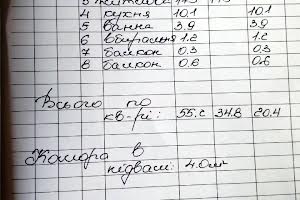 4 кухня 10.1 10.1
5 ванна 3.9 3.9
6 вбиральня 1.2 1.2
7 балкон 0.3 0.3
8 балкон 0.6 0.6
Всього по
кв-рі: 55.2 34.8 20.4
Комора в
підвалі: 4.0 м²